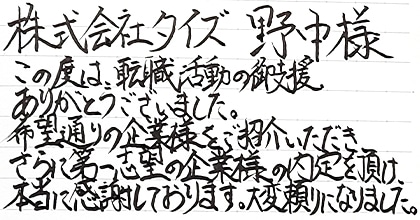 株式会社タイズ 野中様
この度は、転職活動の御支援
ありがとうございました。
希望通りの企業様をご紹介いただき
さらに第一志望の企業様の内定を頂け、
本当に感謝しております。大変頼りになりました。